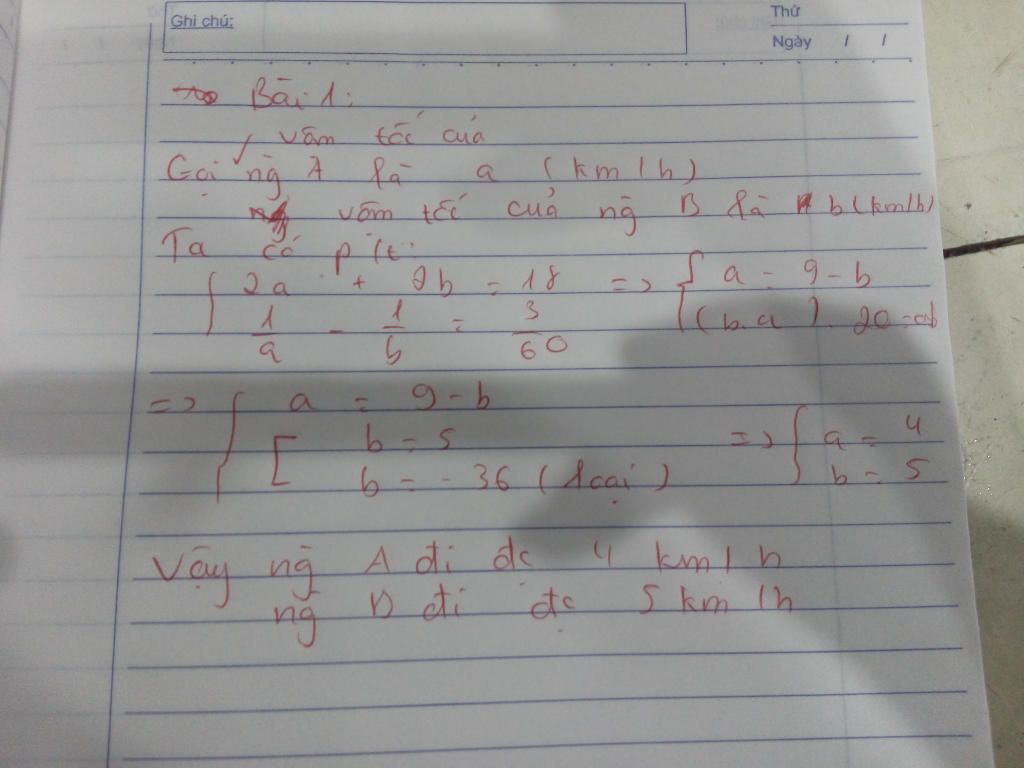 Ghi chú:
Thứ
Ngày / /
Bài 1:
vâm tốc của
Gọi ng A là a (km/h)
vâm tốc của ng B là b (km/h)
Ta có pt:
{ 2a + 2b = 18 => { a = 9 - b
1/a - 1/b = 3/60 (b.a). 20 = ab
=> { a = 9 - b
[ b = 5 => { a = 4
b = - 36 (loại) b = 5
Vậy ng A đi đc 4 km/h
ng B đi đc 5 km/h